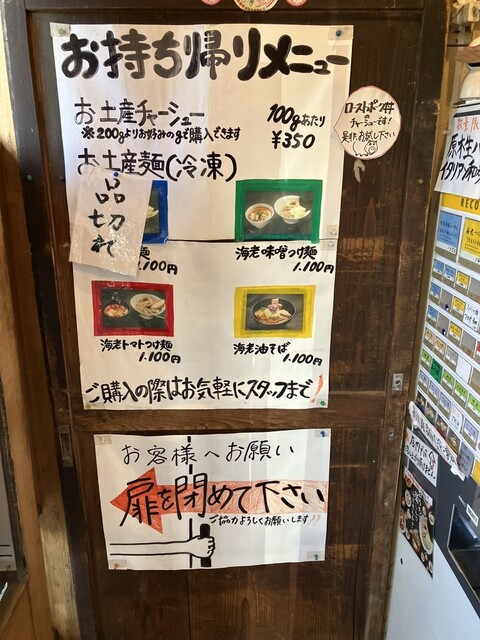 お持ち帰りメニュー
お土産チャーシュー
100gあたり
※200gよりお好みのgで購入できます
¥350
ローストポーク丼
チャーシューです!
是非、お試し下さい
お土産麺(冷凍)
品切れ
麺
1.100円
海老味噌つけ麺
1.100円
海老トマトつけ麺
1.100円
海老油そば
1.100円
ご購入の際はお気軽にスタッフまで!
お客様へお願い
扉を閉めて下さい
ご協力よろしくお願いします!!